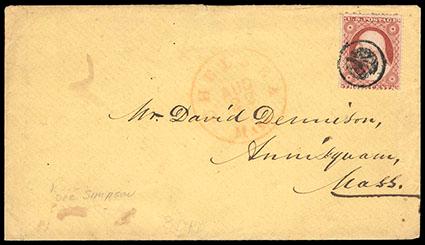 U.S. POSTAGE
CHELSEA
AUG
MAS
Mr. David Dennison,
Annisquam,
Mass.
SIMPSON